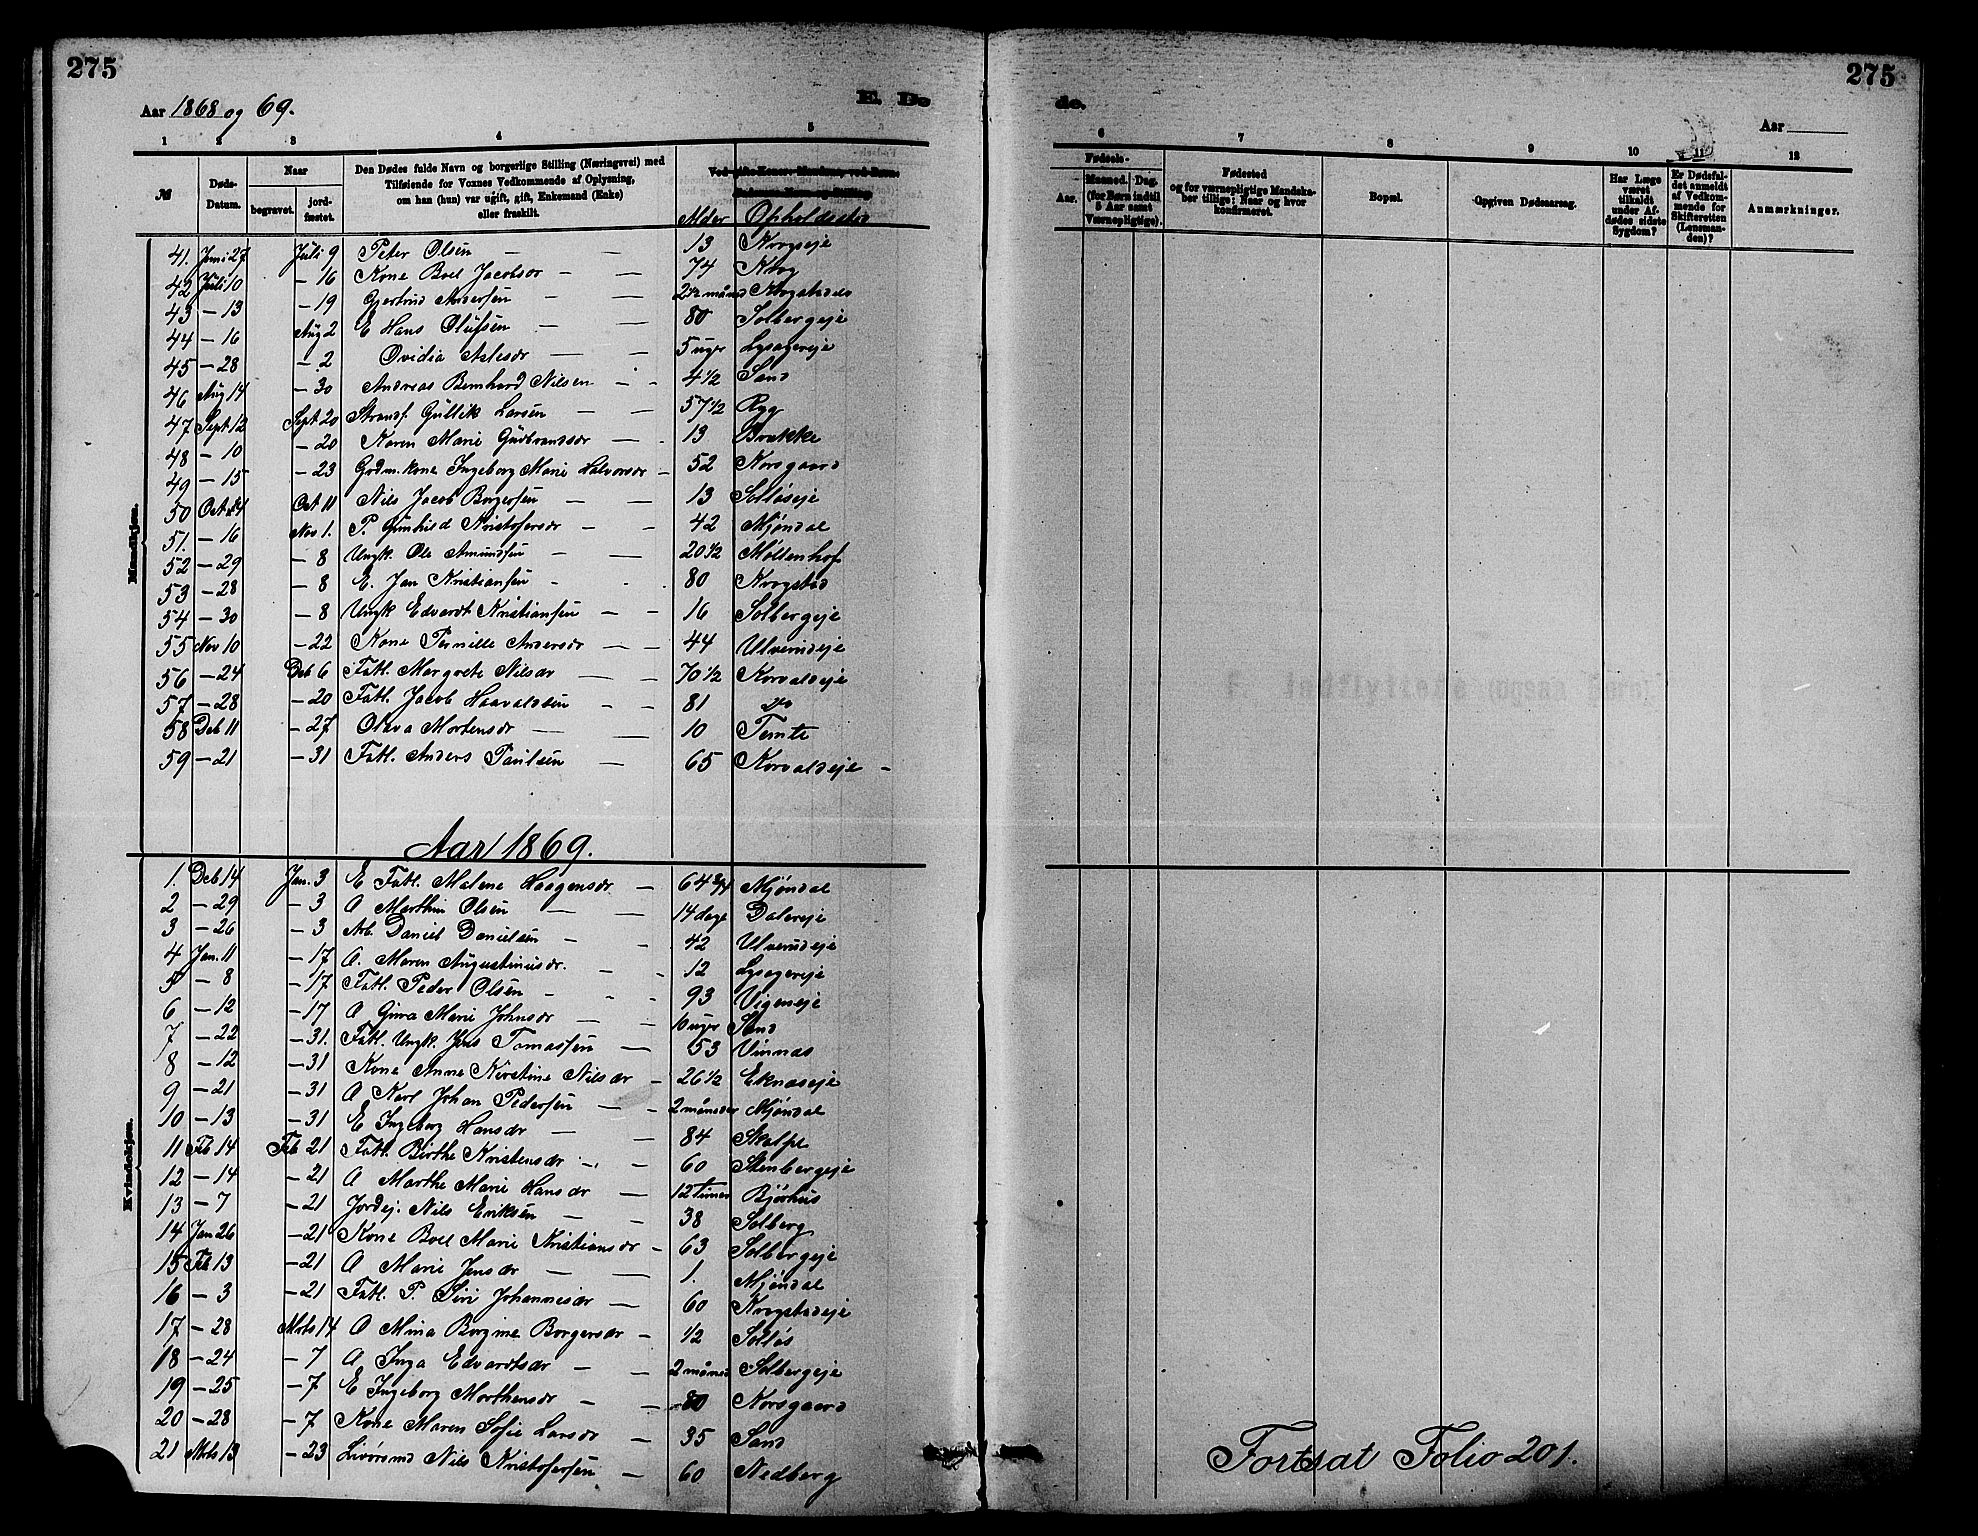 275
275
Aar 1868 og 69.
E. Dø
de.
Aar
1 2 3 4 5
6 7 8 9 10 11 12
№
Døds-Datum.
Naar
begravet.
jord-fæstet.
Den Dødes fulde Navn og borgerlige Stilling (Næringsvei) med
Tilføiende for Voxnes Vedkommende af Oplysning,
om han (hun) var ugift, gift, Enkemand (Enke)
eller fraskilt.
Alder
Opholdssted
Fødsels-
Aar.
Maaned. Dag.
(for Børn indtil
5 Aar samt
Værnepligtige).
Fødested
og for værnepligtige Mandska-
ber tillige: Naar og hvor
konfirmeret.
Bopæl.
Opgiven Dødsaarsag.
Har Læge
været
tilkaldt
under Af-
dødes sidste
Sygdom?
Er Dødsfal-
det anmeldt
af Vedkom-
mende for
Skifteretten
(Lensman-
den)?
Anmærkninger.
Mandkjøn.
41. Juni 27 Juli 9 Peter Olsen — — 13 Krogseje
42 Juli 10 — 16 Kone Boel Jacobsdr — — 74 Krog
43 — 13 — 19 Gjertrud Andersen — — 2 1/2 måned
44 — 16 Aug 2 E Hans Olufsen — — 80 Solbergeje
45 — 28 — 2 Ovidia — — 5 uger Lysagereje
46 Aug 14 — 30 Andreas Bernhard Nilsen - - 4 1/2 Sand
47 Sept 12 Sept 20 Strandf. Gullik Larsen — — 57 1/2 Ryg
48 — 10 — 20 Karen Marie Gudbrandsdr — . 13 Brække
49 — 15 — 23 Grdm.kone Ingeborg Marie Halvorsdr — 52 Korsgaard
50 Oct Oct 11 Nils Jacob Borgersen — — 13 Solløseje
51. — 16 Nov 1. P. Gunhild Kristofersdr — - 42 Mjøndal
52 — 29 — 8 Ungk. Ole Amundsen — — 20 1/2 Møllenhof
53 — 28 — 8 E. Jan Kristiansen - . 80 Krogstad
54 — 30 — 8 Ungk Edvardt Kristiansen — - 16 Solbergeje
55 Nov 10 — 22 Kone Pernille Andersdr — — 44 Ulverudeje
56 — 24 Deb 6 Fatl. Margrete Nilsdr — — 70 1/2 Korvaldeje
57 — 28 — 20 Fatl. Jacob Haavaldsen — - 81 do
58 Deb 11 — 27 Olava Mortensdr — — 10 Temte
59 — 21 — 31 Fatl. Anders Paulsen — 65 Korvaldeje -
Aar 1869.
Kvindekjøn.
1. Deb 14 Jan. 3 E Fatl. Malene Haagensdr — 64 3/4 Mjøndal
2 — 29 — 3 A Marthin Olsen — — 14 dage Dalereje
3 — 26 — 3 Arb. Daniel Danielsen - - 42 Ulverudeje
4 Jan. 11 — 17 A. Maren Augustinusdr. — - 12 Lysagereje
5 — 8 — 17 Fatl. Peder Olsen — - - 93 Vigeneje
6 — 12 — 17 A Gina Marie Johnsdr — — uger Sand
7 — 22 — 31. Fatl. Ungk. Jens Tomassen — 53 Vinnæs
8 — 12 — 31 Kone Anne Kirstine Nilsdr — 26 1/2 Eknæseje
9 — 21 — 31 A Karl Johan Pedersen — - 2 måneder Mjøndal
10 — 13 — 31 E Ingeborg Hansdr — — 84 Skalpe
11 Feb 14 Feb 21 Fatl. Birthe Kristensdr - - 60 Stenbergeje
12 — 14 — 21 A Marthe Marie Hansdr — 12 timer Bjørhus
13 — 7 — 21 Jordej. Nils Eriksen — - 38 Solberg
14 Jan 26 — 21 Kone Boel Marie Kristiansdr — 63 Solbergeje
15 Feb 13 — 21 A Marie Jensdr — — 1. Mjøndal
16 — 3 — 21 Fatl. P. Siri Johannesdr — 60 Krogstadeje
17 — 28 Mrts 14 A Mina Borgine Borgersdr — 1/2 Solløs
18 — 24 — 7 A Inga Edvardtsdr — — 2 måned Solbergeje
19 — 25 — 7 E Ingeborg Morthensdr — — 80 Korsgaard
20 — 28 — 7 Kone Maren Sofie Larsdr — 35 Sand
21 Mrts 13 — 23 Nils Kristofersen — 60 Nedberg
Fortsat Folio 201.